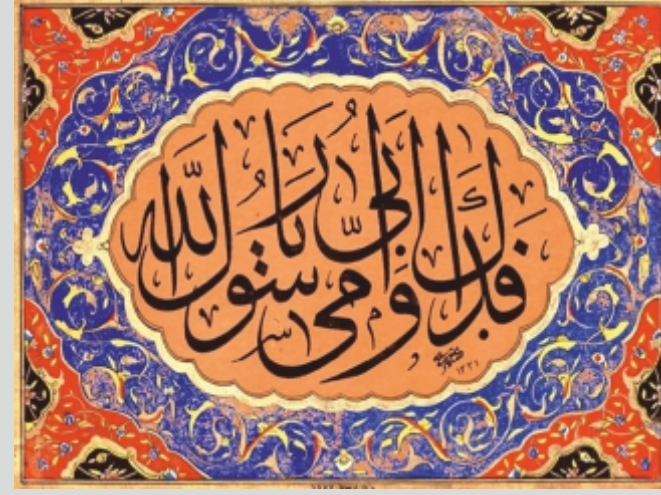 فداك ابى وامى يا رسول الله
١٣٢١